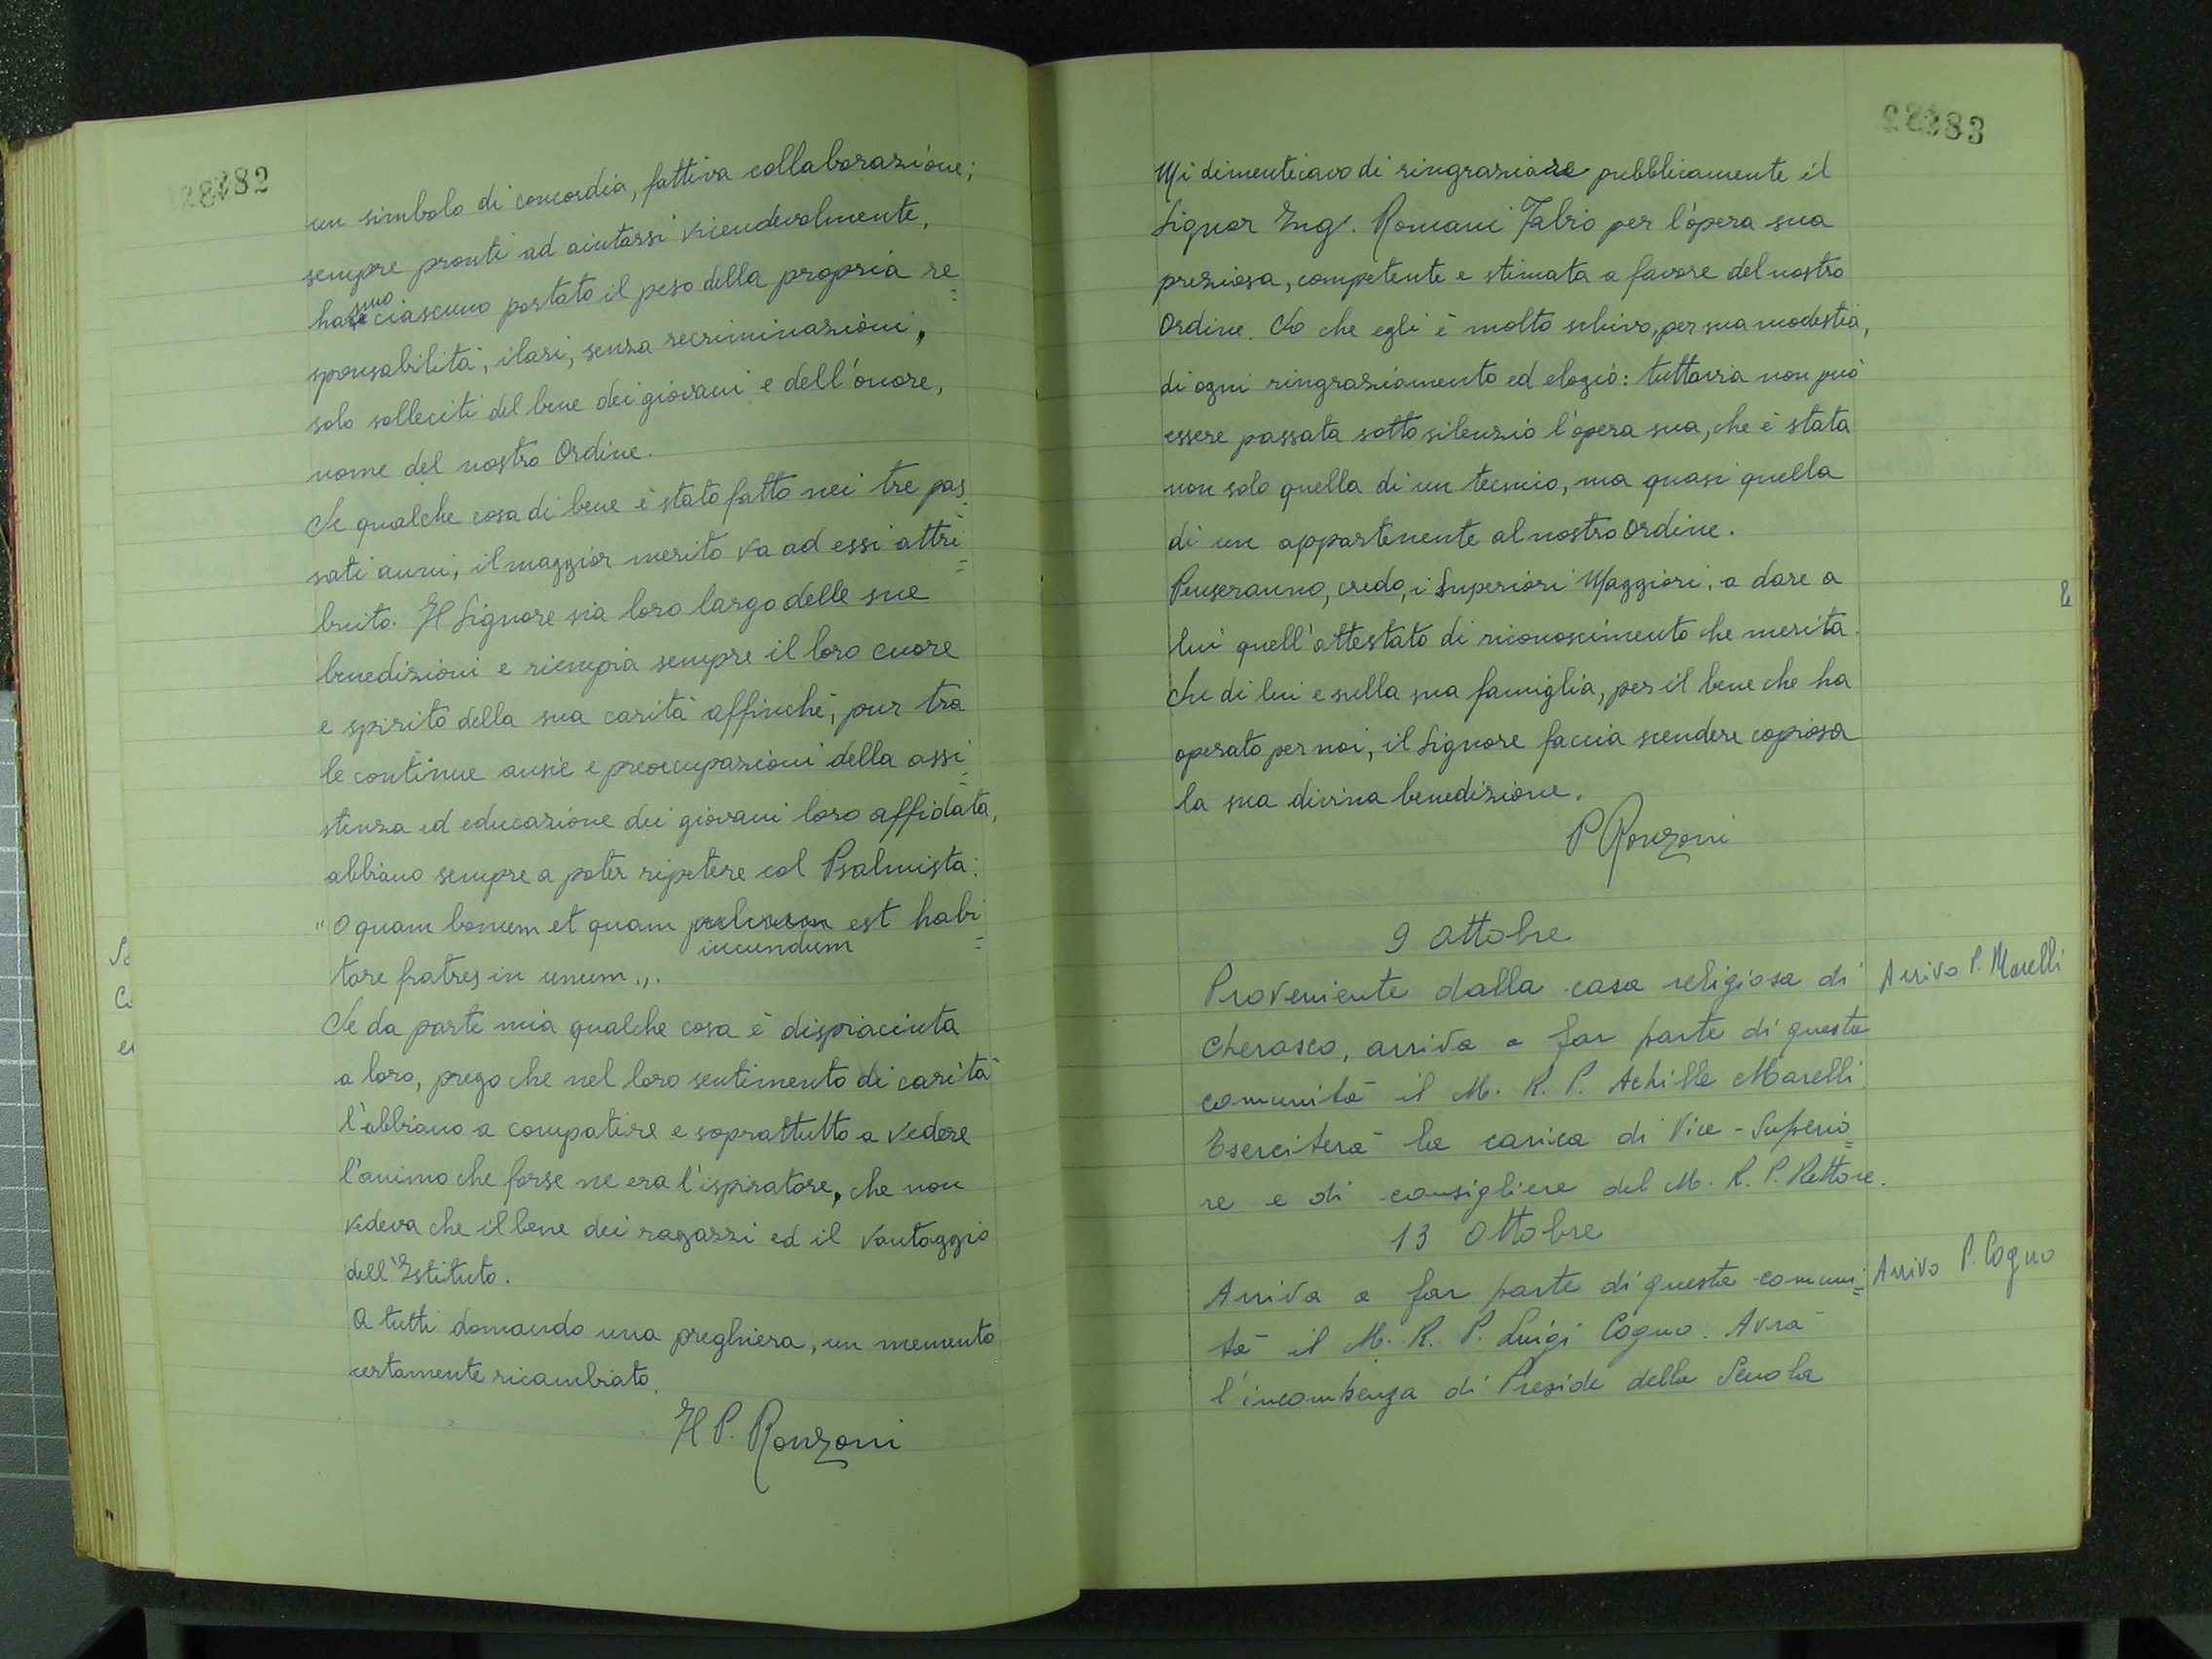 282
un simbolo di concordia, fattiva collaborazione;
sempre pronti ad aiutarsi vicendevolmente,
hanno ciascuno portato il peso della propria re=
sponsabilità, ilari, senza recriminazioni,
solo solleciti del bene dei giovani e dell'onore,
nome del nostro Ordine.
Se qualche cosa di bene è stato fatto nei tre pas=
sati anni, il maggior merito va ad essi attri=
buito. Il Signore sia loro largo delle sue
benedizioni e riempia sempre il loro cuore
e spirito della sua carità affinché, pur tra
le continue ansie e preoccupazioni della assi=
stenza ed educazione dei giovani loro affidata,
abbiano sempre a poter ripetere col Psalmista:
"O quam bonum et quam iucundum est habi=
tare fratres in unum".
Se da parte mia qualche cosa è dispiaciuta
a loro, prego che nel loro sentimento di carità
l'abbiano a compatire e soprattutto a vedere
l'animo che forse ne era l'ispiratore, che non
vedeva che il bene dei ragazzi ed il vantaggio
dell'Istituto.
A tutti domando una preghiera, un memento
certamente ricambiato.
Il P. Ronzoni
283
Mi dimenticavo di ringraziare pubblicamente il
Signor Ing. Romani Fabio per l'opera sua
preziosa, competente e stimata a favore del nostro
Ordine. So che egli è molto schivo, per sua modestia,
di ogni ringraziamento ed elogio: tuttavia non può
essere passata sotto silenzio l'opera sua, che è stata
non solo quella di un tecnico, ma quasi quella
di un appartenente al nostro Ordine.
Penseranno, credo, i Superiori Maggiori, a dare a
lui quell'attestato di riconoscimento che merita.
Su di lui e sulla sua famiglia, per il bene che ha
operato per noi, il Signore faccia scendere copiosa
la sua divina benedizione.
P Ronzoni
9 Ottobre
Proveniente dalla casa religiosa di
Arrivo P. Marelli
Cherasco, arriva a far parte di questa
comunità il M. R. P. Achille Marelli.
Eserciterà la carica di Vice-Superio=
re e di consigliere del M. R. P. Rettore.
13 Ottobre
Arriva a far parte di questa comuni=
Arrivo P. Cogno
tà il M. R. P. Luigi Cogno. Avrà
l'incombenza di Preside della Scuola